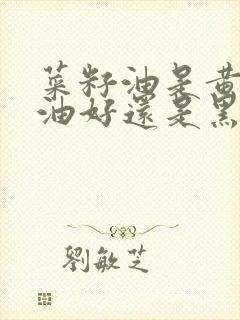 菜籽油是黄
油好還是黑
劉敏芝